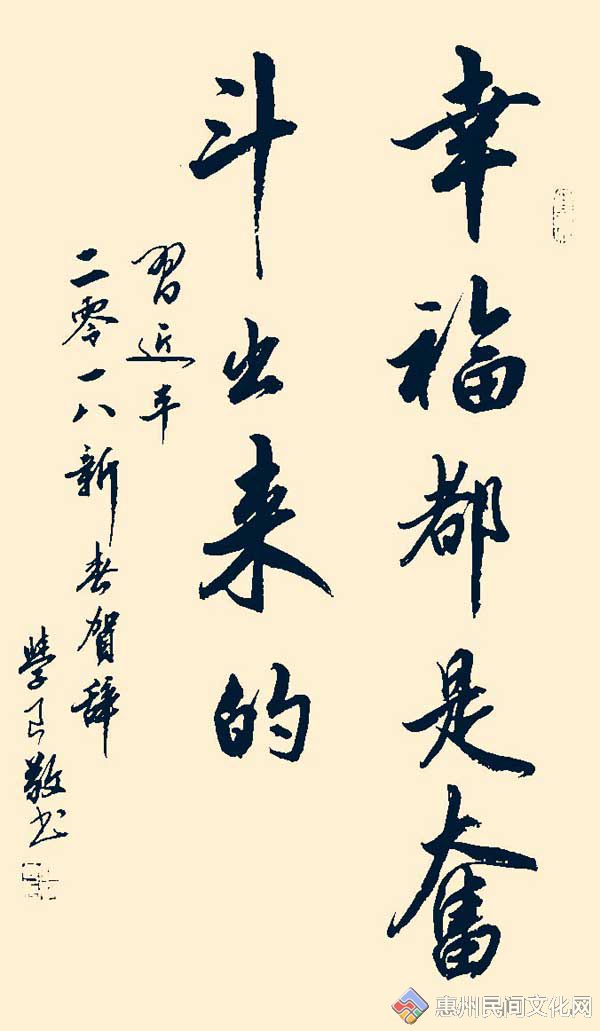 幸福都是奋
斗出来的
習近平
二零一八新春賀辭
學良敬书
惠州民间文化网